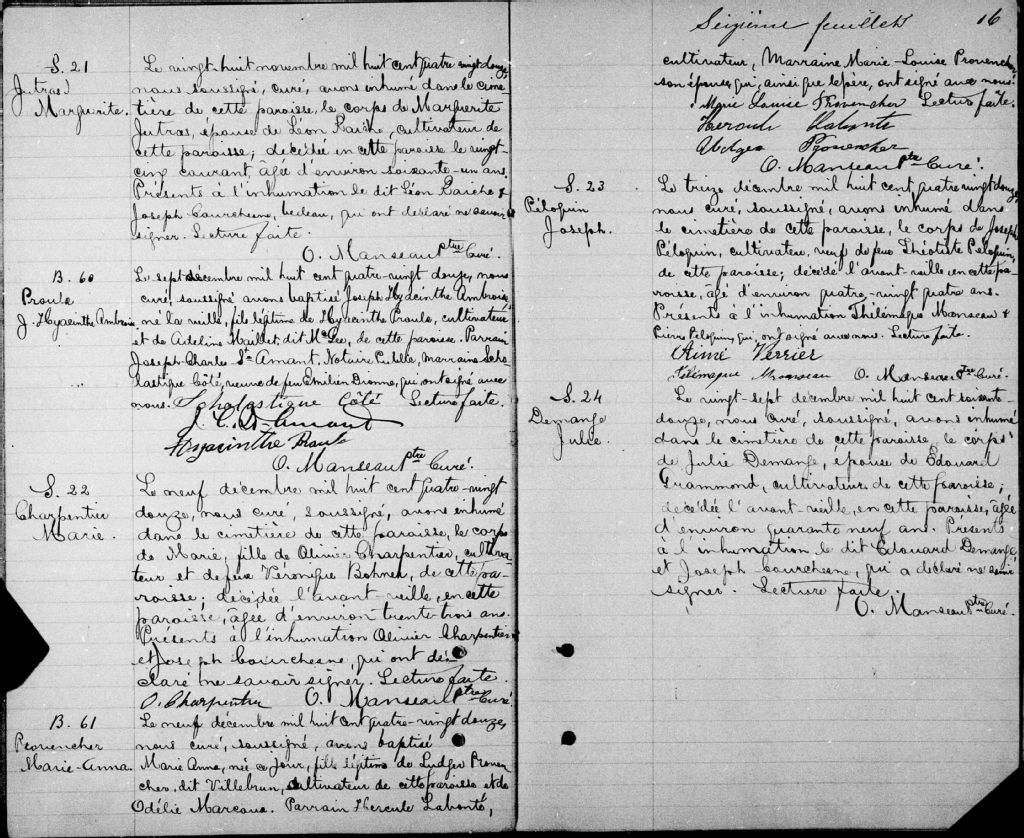 S. 21
Jutras
Marguerite.
Le vingt-huit novembre mil huit cent quatre vingt douze,
nous soussigné, curé, avons inhumé dans le cime-
tière de cette paroisse, le corps de Marguerite
Jutras, épouse de Léon Raiche, cultivateur de
cette paroisse; décédée en cette paroisse le vingt-
cinq courant, âgée d'environ soixante-un ans.
Présents à l'inhumation le dit Léon Raiche &
Joseph Courchesne, bedeau, qui ont déclaré ne savoir
signer. Lecture faite.
O. Manseau ptre Curé.
B. 60
Proulx
J. Hyacinthe Ambroise
Le sept décembre mil huit cent quatre-vingt douze, nous
curé, soussigné avons baptisé Joseph Hyacinthe Ambroise,
né la veille, fils légitime de Hyacinthe Proulx, cultivateur
et de Adeline Maillet dit McLee, de cette paroisse. Parrain
Joseph-Charles St Amant, Notaire Public, marraine Scho-
lastique Côté, veuve de feu Emilien Dionne, qui ont signé avec
nous. Scholastique Côté Lecture faite.
J. C. St-Amant
Hyacinthe Proulx
O. Manseau ptre Curé.
S. 22
Charpentier
Marie.
Le neuf décembre mil huit cent quatre-vingt
douze, nous curé, soussigné, avons inhumé
dans le cimetière de cette paroisse, le corps
de Marie, fille de Olivier Charpentier, cultiva-
teur et de feue Véronique de cette pa-
roisse; décédée l'avant-veille, en cette
paroisse, âgée d'environ trente-trois ans.
Présents à l'inhumation Olivier Charpentier
et Joseph Courchesne, qui ont dé-
claré ne savoir signer. Lecture faite.
O. Charpentier O. Manseau ptre Curé
B. 61
Provencher
Marie-Anna.
Le neuf décembre mil huit cent quatre-vingt douze,
nous curé, soussigné, avons baptisé
Marie Anna, née ce jour, fille légitime de Ludger Proven
cher dit Villebrun, cultivateur de cette paroisse et de
Odélie Marcoux. Parrain Hercule Labonté,
Seizième feuillet 16
cultivateur, Marraine Marie-Louise Provencher,
son épouse, qui, ainsi que le père, ont signé avec nous.
Marie Louise Provencher Lecture faite.
Hercule Labonté
Provencher
O. Manseau ptre Curé.
S. 23
Péloquin
Joseph.
Le treize décembre mil huit cent quatre vingt douze,
nous curé, soussigné, avons inhumé dans
le cimetière de cette paroisse, le corps de Joseph
Péloquin, cultivateur, veuf de feue Théotiste Péloquin,
de cette paroisse; décédé l'avant-veille, en cette pa-
roisse, âgé d'environ quatre-vingt quatre ans.
Présents à l'inhumation Thélémaque Manseau &
Pierre Péloquin, qui ont signé avec nous. Lecture faite.
Aimé Verrier
Télémaque Manseau O. Manseau Ptre Curé.
S. 24
Demange
Julie.
Le vingt-sept décembre mil huit cent soixante-
douze, nous curé, soussigné, avons inhumé
dans le cimetière de cette paroisse, le corps
de Julie Demange, épouse de Édouard
Grammond, cultivateur de cette paroisse;
décédée l'avant-veille, en cette paroisse, âgée
d'environ quarante neuf ans. Présents
à l'inhumation le dit Edouard Demange
et Joseph Courchesne, qui a déclaré ne savoir
signer. Lecture faite.
O. Manseau ptre Curé.